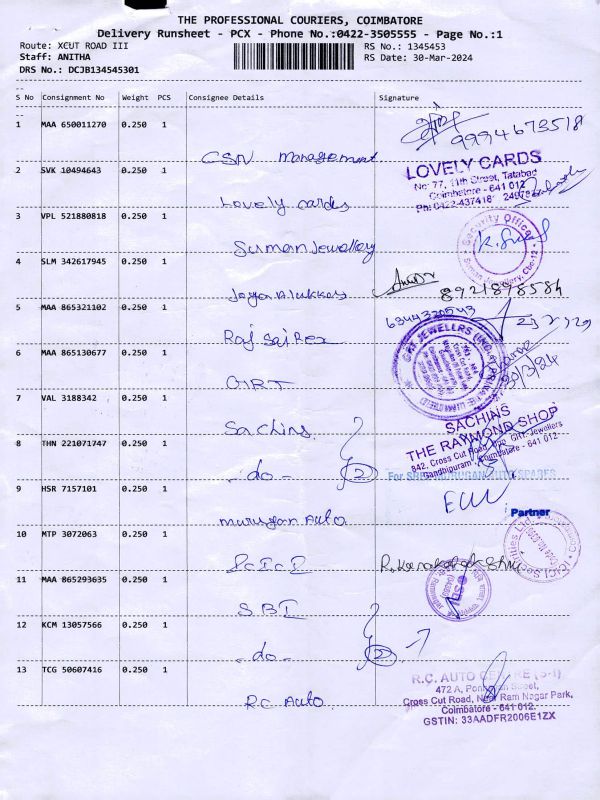 THE PROFESSIONAL COURIERS, COIMBATORE
Delivery Runsheet - PCX - Phone No.:0422-3505555 - Page No.:1
Route: XCUT ROAD III RS No.: 1345453
Staff: ANITHA RS Date: 30-Mar-2024
DRS No.: DCJB134545301
S No Consignment No Weight PCS Consignee Details Signature
1 MAA 650011270 0.250 1
9994673518
CSN management
LOVELY CARDS
No: 77, 11th Street, Tatabad
Coimbatore - 641 012
2 SVK 10494643 0.250 1
Lovely cards
3 VPL 521880818 0.250 1
Security Office
Suman Jewellery, Cbe-12
Suman Jewellery
4 SLM 342617945 0.250 1
8921898584
Joyalukkas
5 MAA 865321102 0.250 1
6344320543
Raj Sai Rex
6 MAA 865130677 0.250 1
GRT JEWELLERS (IND
30/3/24
GIRT
7 VAL 3188342 0.250 1
SACHINS
THE RAYMOND SHOP
842, Cross Cut Road, GRT Jewellers
Gandhipuram, Coimbatore - 641 012
Sachins
8 THN 221071747 0.250 1
-do- 2
9 HSR 7157101 0.250 1
Partner
Murugan Auto
10 MTP 3072063 0.250 1
R. Kanakalakshmi
ICICI
11 MAA 865293635 0.250 1
SBI
12 KCM 13057566 0.250 1
-do- 2
13 TCG 50607416 0.250 1
R.C. AUTO CENTRE (S-1)
472 A, Street,
Cross Cut Road, Near Ram Nagar Park,
Coimbatore - 641 012.
GSTIN: 33AADFR2006E1ZX
RC Auto